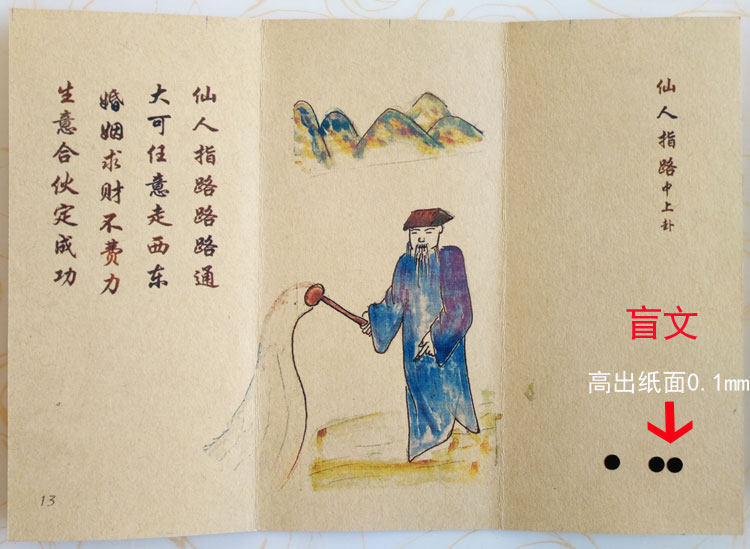 仙人指路中上卦
盲文
高出纸面0.1mm
仙人指路路路通
大可任意走西东
婚姻求财不费力
生意合伙定成功
13